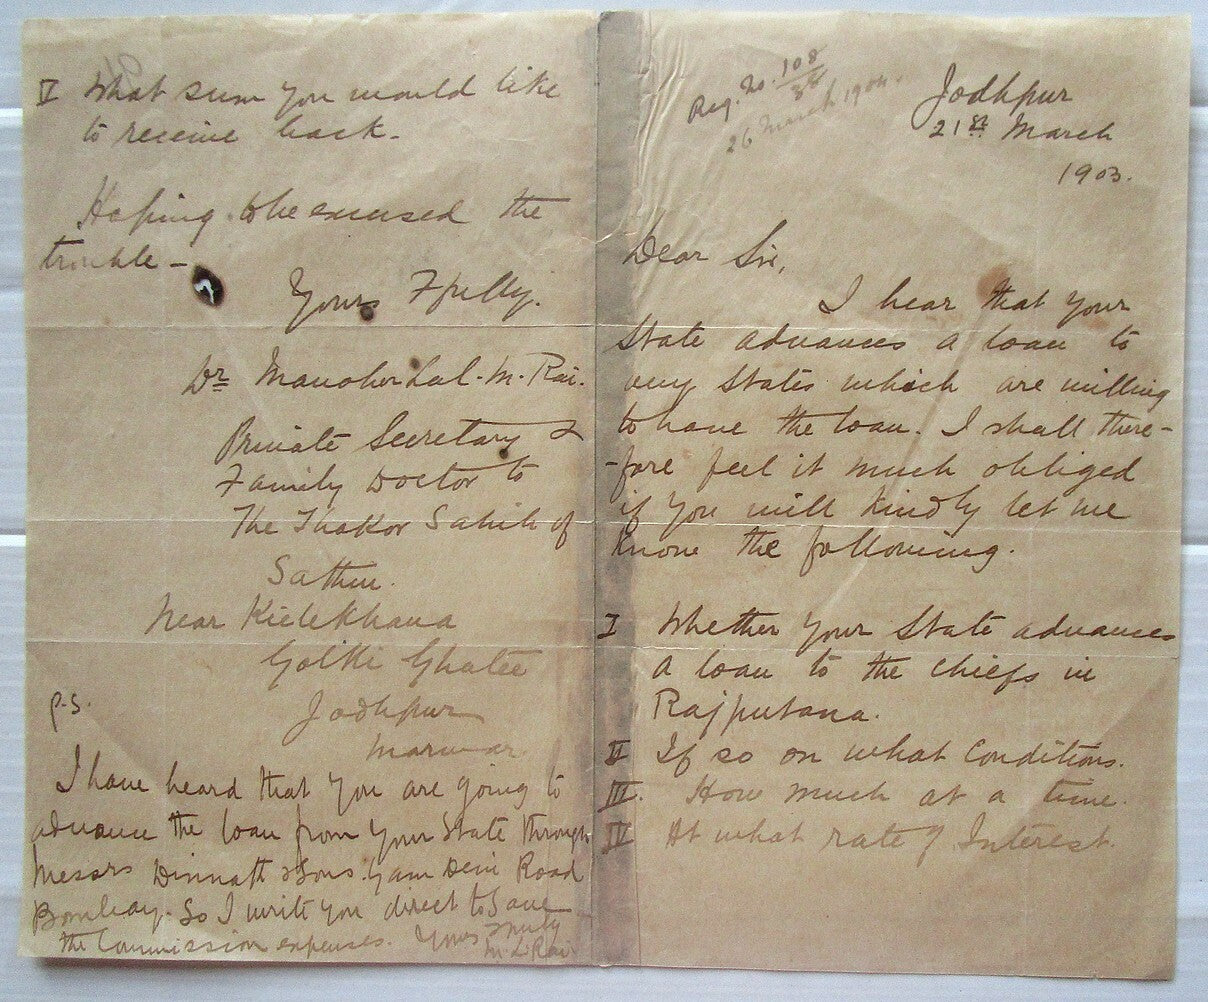 Reg. No. 108/36
26 March 1904.
Jodhpur
21st March
1903.
Dear Sir,
I hear that your
State advances a loan to
any States which are willing
to have the loan. I shall there-
-fore feel it much obliged
if you will kindly let me
know the following.
I Whether your State advances
a loan to the chiefs in
Rajputana.
II If so on what conditions.
III. How much at a time.
IV At what rate of Interest.
V What sum you would like
to receive back.
Hoping to be excused the
trouble -
Yours Ffully.
Dr Manoher Lal. M. Rai.
Private Secretary &
Family Doctor to
The Thakor Sahib of
Sathin.
Near Kielekhana
Golki Ghatee
Jodhpur
Marwar.
P.S.
I have heard that you are going to
advance the loan from your State through
Messrs Dinnath & Sons. Gam Devi Road
Bombay. So I write you direct to save
the Commission expenses. Yours Truly
M. L. Rai.